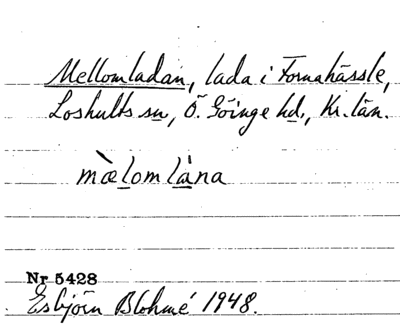 Mellomladan, lada i Fornahässle,
Loshults sn, Ö. Göinge hd., Kr. län.
mæ̀lomlàna
Nr 5428
Esbjörn Blohmé 1948.